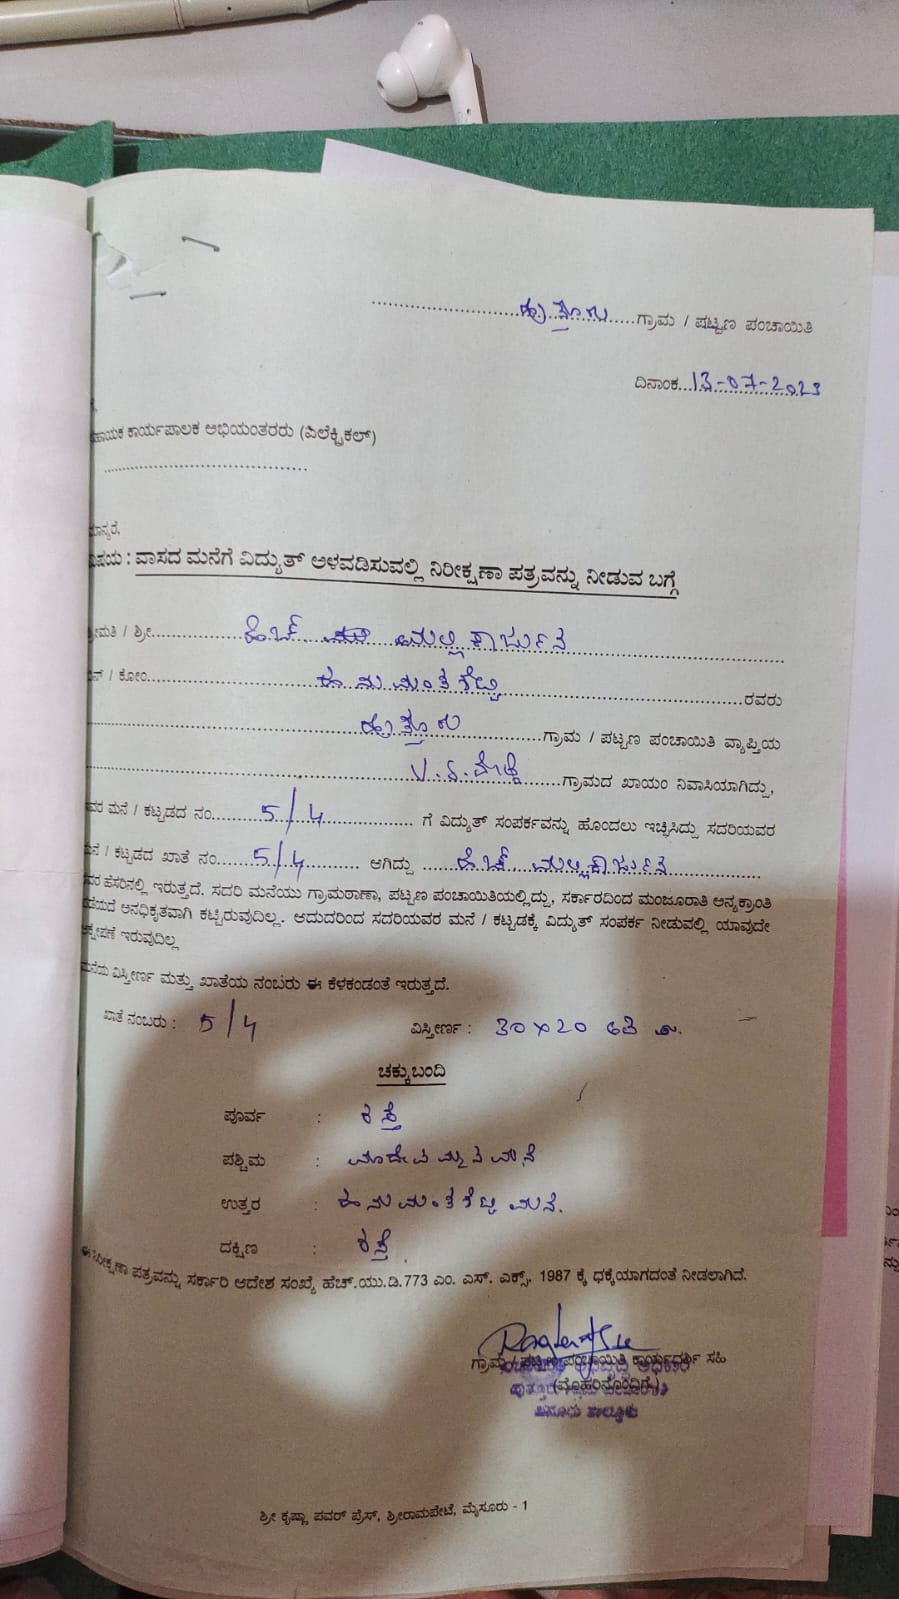 ಗ್ರಾಮ / ಪಟ್ಟಣ ಪಂಚಾಯಿತಿ
ದಿನಾಂಕ 13-07-2023
ಕಾರ್ಯಪಾಲಕ ಅಭಿಯಂತರರು (ಎಲೆಕ್ಟ್ರಿಕಲ್)
: ವಾಸದ ಮನೆಗೆ ವಿದ್ಯುತ್ ಅಳವಡಿಸುವಲ್ಲಿ ನಿರೀಕ್ಷಣಾ ಪತ್ರವನ್ನು ನೀಡುವ ಬಗ್ಗೆ
/ ಶ್ರೀ ಹೆಚ್ ಮಲ್ಲಿಕಾರ್ಜುನ
/ ಕೋಂ ಹನುಮಂತಶೆಟ್ಟಿ ರವರು
ಗ್ರಾಮ / ಪಟ್ಟಣ ಪಂಚಾಯಿತಿ ವ್ಯಾಪ್ತಿಯ
ಗ್ರಾಮದ ಖಾಯಂ ನಿವಾಸಿಯಾಗಿದ್ದು,
ಮನೆ / ಕಟ್ಟಡದ ನಂ 5/4 ಗೆ ವಿದ್ಯುತ್ ಸಂಪರ್ಕವನ್ನು ಹೊಂದಲು ಇಚ್ಛಿಸಿದ್ದು ಸದರಿಯವರ
/ ಕಟ್ಟಡದ ಖಾತೆ ನಂ 5/4 ಆಗಿದ್ದು ಹೆಚ್. ಮಲ್ಲಿಕಾರ್ಜುನ
ಹೆಸರಿನಲ್ಲಿ ಇರುತ್ತದೆ. ಸದರಿ ಮನೆಯು ಗ್ರಾಮಠಾಣಾ, ಪಟ್ಟಣ ಪಂಚಾಯಿತಿಯಲ್ಲಿದ್ದು, ಸರ್ಕಾರದಿಂದ ಮಂಜೂರಾತಿ ಅನ್ಯಕ್ರಾಂತಿ
ಅನಧಿಕೃತವಾಗಿ ಕಟ್ಟಿರುವುದಿಲ್ಲ. ಆದುದರಿಂದ ಸದರಿಯವರ ಮನೆ / ಕಟ್ಟಡಕ್ಕೆ ವಿದ್ಯುತ್ ಸಂಪರ್ಕ ನೀಡುವಲ್ಲಿ ಯಾವುದೇ
ಇರುವುದಿಲ್ಲ
ವಿಸ್ತೀರ್ಣ ಮತ್ತು ಖಾತೆಯ ನಂಬರು ಈ ಕೆಳಕಂಡಂತೆ ಇರುತ್ತದೆ.
ಖಾತೆ ನಂಬರು : 5/4 ವಿಸ್ತೀರ್ಣ : 30x20
ಚಕ್ಕುಬಂದಿ
ಪೂರ್ವ : ರಸ್ತೆ
ಪಶ್ಚಿಮ :
ಉತ್ತರ : ಹನುಮಂತಶೆಟ್ಟಿ ಮನೆ.
ದಕ್ಷಿಣ : ರಸ್ತೆ
ಈ ನಿರೀಕ್ಷಣಾ ಪತ್ರವನ್ನು ಸರ್ಕಾರಿ ಆದೇಶ ಸಂಖ್ಯೆ ಹೆಚ್.ಯು.ಡಿ.773 ಎಂ. ಎಸ್. ಎಕ್ಸ್. 1987 ಕ್ಕೆ ಧಕ್ಕೆಯಾಗದಂತೆ ನೀಡಲಾಗಿದೆ.
ಗ್ರಾಮ / ಪಟ್ಟಣ ಪಂಚಾಯಿತಿ ಕಾರ್ಯದರ್ಶಿ ಸಹಿ
(ಮೊಹರಿನೊಂದಿಗೆ)
ತಾಲ್ಲೂಕು
ಶ್ರೀ ಕೃಷ್ಣಾ ಪವರ್ ಪ್ರೆಸ್, ಶ್ರೀರಾಮಪೇಟೆ, ಮೈಸೂರು - 1